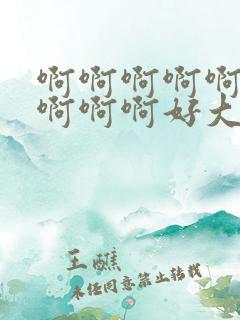 啊啊啊啊啊
啊啊啊好大
王醮
未经同意禁止转载